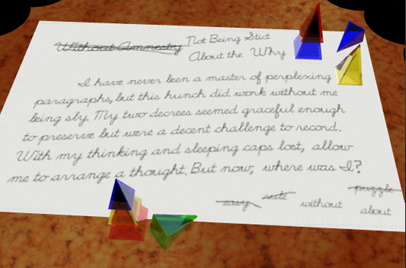 Without Amnesty Not Being Stict
About the Why
I have never been a master of perplexing
paragraphs, but this hunch did work without me
being sly. My two decrees seemed graceful enough
to preserve but were a decent challenge to record.
With my thinking and sleeping caps lost, allow
me to arrange a thought. But now, where was I?
essay suite without puzzle
about